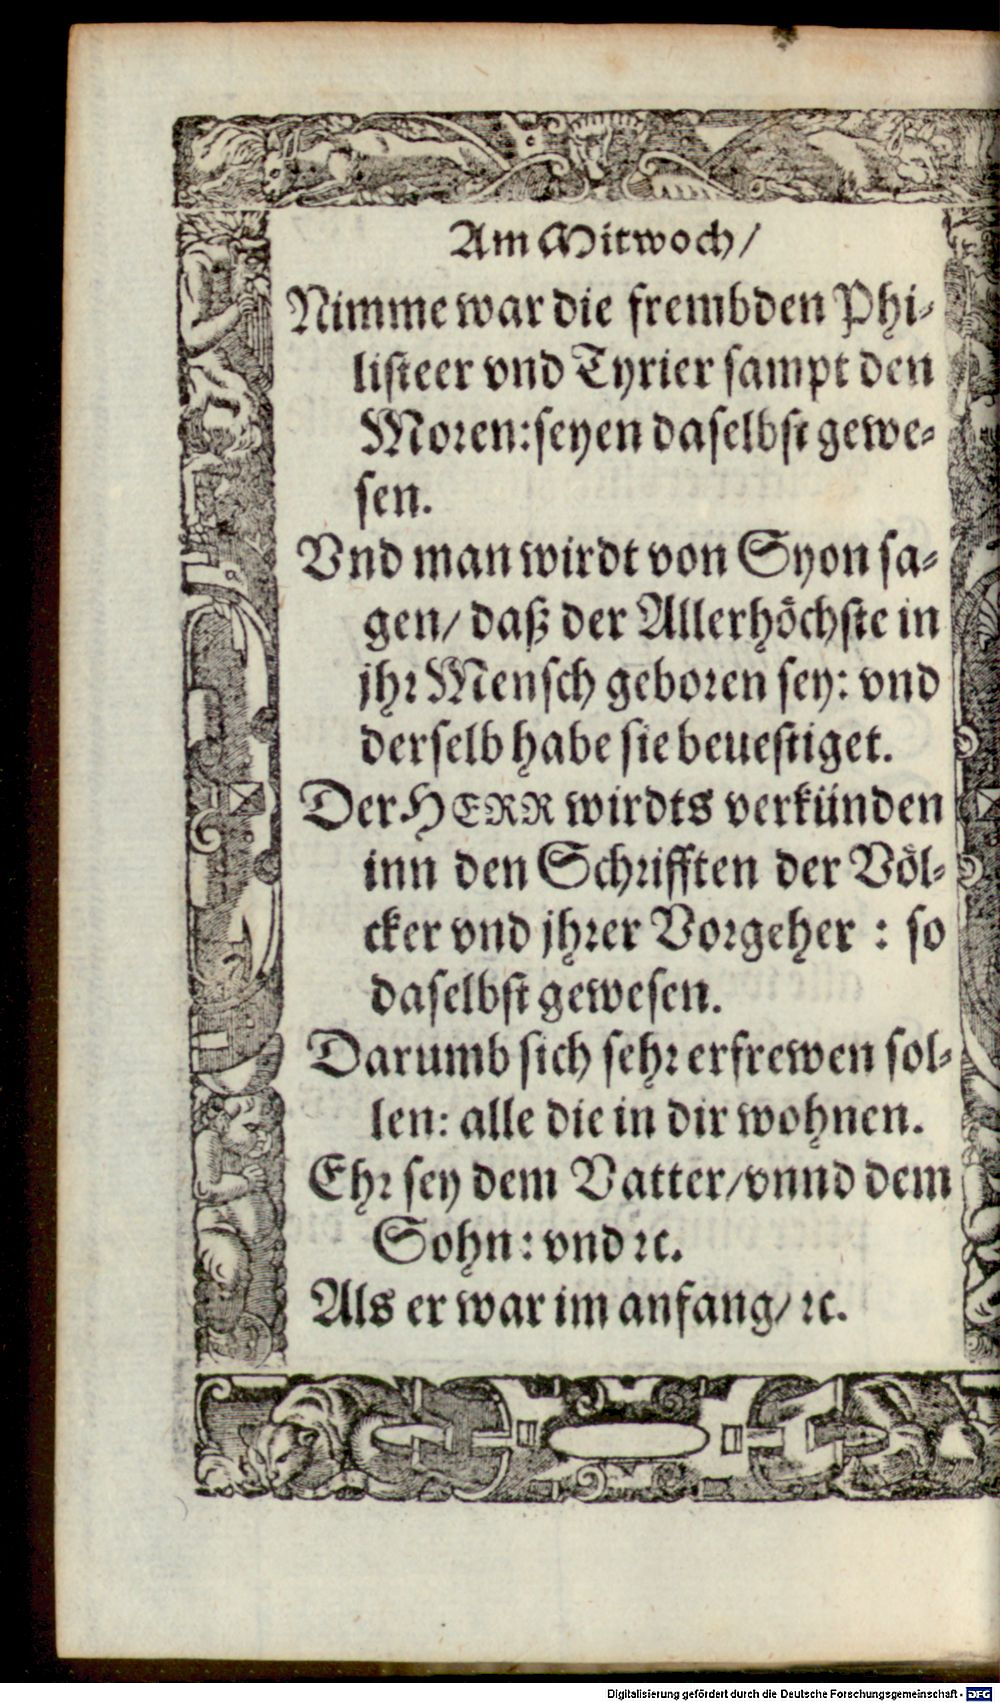 Am Mitwoch/
Nimme war die frembden Phi-
listeer vnd Tyrier sampt den
Moren: seyen daselbst gewe-
sen.
Vnd man wirdt von Syon sa-
gen/ daß der Allerhöchste in
jhr Mensch geboren sey: vnd
derselb habe sie beuestiget.
Der HERR wirdts verkünden
inn den Schrifften der Völ-
cker vnd jhrer Vorgeher : so
daselbst gewesen.
Darumb sich sehr erfrewen sol-
len: alle die in dir wohnen.
Ehr sey dem Vatter/ vnnd dem
Sohn: vnd ꝛc.
Als er war im anfang/ ꝛc.
Digitalisierung gefördert durch die Deutsche Forschungsgemeinschaft - DFG